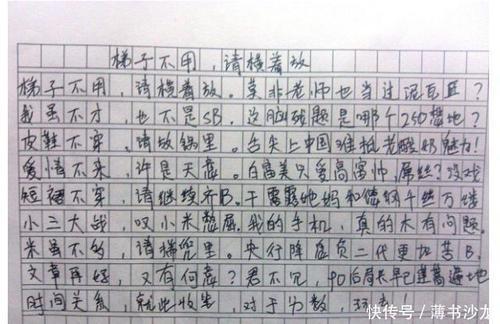 梯子不用,请横着放
梯子不用,请横着放。莫非老师也当过泥瓦匠?
我虽不才,也不是SB,没脑残题是哪个250整地?
皮鞋不穿,请放锅里。舌尖上中国难抵老酸奶魅力!
爱情不来,许是天意。白富美只爱高富帅,屌丝?没戏
短裙不穿,请继续齐B。干露露她妈和您纲千丝万缕
小三大战,叹小米憋屈,我的手机,真的木有问题。
米虽不的,请揣兜里。央行降息负二代更加苦B。
文章再好,又有何意?君不见,90后局长早已蓬蒿遍地
时间关系,就此收笔,对于分数,
快传号/薄书沙龙